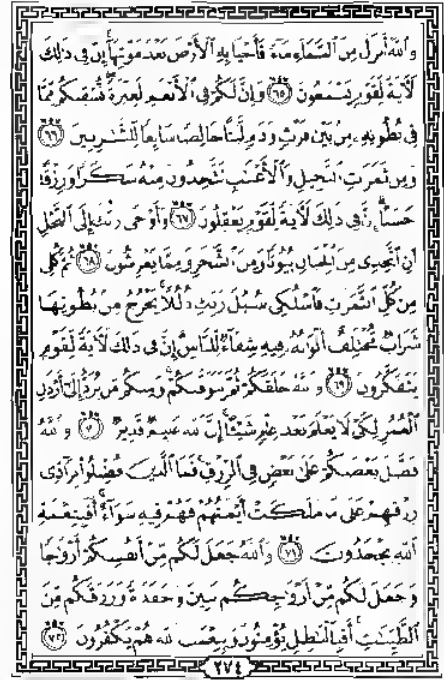 وَٱللَّهُ أَنزَلَ مِنَ ٱلسَّمَآءِ مَآءً فَأَحْيَا بِهِ ٱلْأَرْضَ بَعْدَ مَوْتِهَآ إِنَّ فِى ذَٰلِكَ
لَآيَةً لِّقَوْمٍ يَسْمَعُونَ ٦٥ وَإِنَّ لَكُمْ فِى ٱلْأَنْعَٰمِ لَعِبْرَةً نُّسْقِيكُم مِّمَّا
فِى بُطُونِهِۦ مِنۢ بَيْنِ فَرْثٍ وَدَمٍ لَّبَنًا خَالِصًا سَآئِغًا لِّلشَّٰرِبِينَ ٦٦
وَمِن ثَمَرَٰتِ ٱلنَّخِيلِ وَٱلْأَعْنَٰبِ تَتَّخِذُونَ مِنْهُ سَكَرًا وَرِزْقًا
حَسَنًا إِنَّ فِى ذَٰلِكَ لَآيَةً لِّقَوْمٍ يَعْقِلُونَ ٦٧ وَأَوْحَىٰ رَبُّكَ إِلَى ٱلنَّحْلِ
أَنِ ٱتَّخِذِى مِنَ ٱلْجِبَالِ بُيُوتًا وَمِنَ ٱلشَّجَرِ وَمِمَّا يَعْرِشُونَ ٦٨ ثُمَّ كُلِى
مِن كُلِّ ٱلثَّمَرَٰتِ فَٱسْلُكِى سُبُلَ رَبِّكِ ذُلُلًا يَخْرُجُ مِنۢ بُطُونِهَا
شَرَابٌ مُّخْتَلِفٌ أَلْوَٰنُهُۥ فِيهِ شِفَآءٌ لِّلنَّاسِ إِنَّ فِى ذَٰلِكَ لَآيَةً لِّقَوْمٍ
يَتَفَكَّرُونَ ٦٩ وَٱللَّهُ خَلَقَكُمْ ثُمَّ يَتَوَفَّىٰكُمْ وَمِنكُم مَّن يُرَدُّ إِلَىٰٓ أَرْذَلِ
ٱلْعُمُرِ لِكَىْ لَا يَعْلَمَ بَعْدَ عِلْمٍ شَيْـًٔا إِنَّ ٱللَّهَ عَلِيمٌ قَدِيرٌ ٧٠ وَٱللَّهُ
فَضَّلَ بَعْضَكُمْ عَلَىٰ بَعْضٍ فِى ٱلرِّزْقِ فَمَا ٱلَّذِينَ فُضِّلُوا۟ بِرَآدِّى
رِزْقِهِمْ عَلَىٰ مَا مَلَكَتْ أَيْمَٰنُهُمْ فَهُمْ فِيهِ سَوَآءٌ أَفَبِنِعْمَةِ
ٱللَّهِ يَجْحَدُونَ ٧١ وَٱللَّهُ جَعَلَ لَكُم مِّنْ أَنفُسِكُمْ أَزْوَٰجًا
وَجَعَلَ لَكُم مِّنْ أَزْوَٰجِكُم بَنِينَ وَحَفَدَةً وَرَزَقَكُم مِّنَ
ٱلطَّيِّبَٰتِ أَفَبِٱلْبَٰطِلِ يُؤْمِنُونَ وَبِنِعْمَتِ ٱللَّهِ هُمْ يَكْفُرُونَ ٧٢
٢٧٤